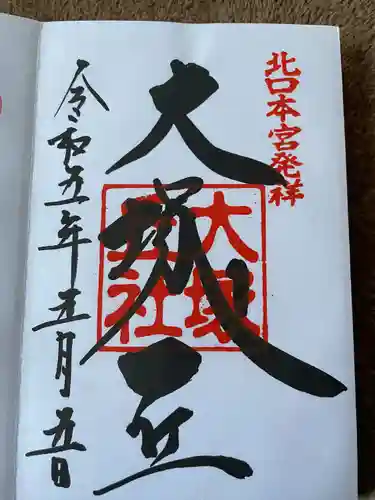 北口本宮発祥
大塚丘
大塚
丘社
令和五年五月五日